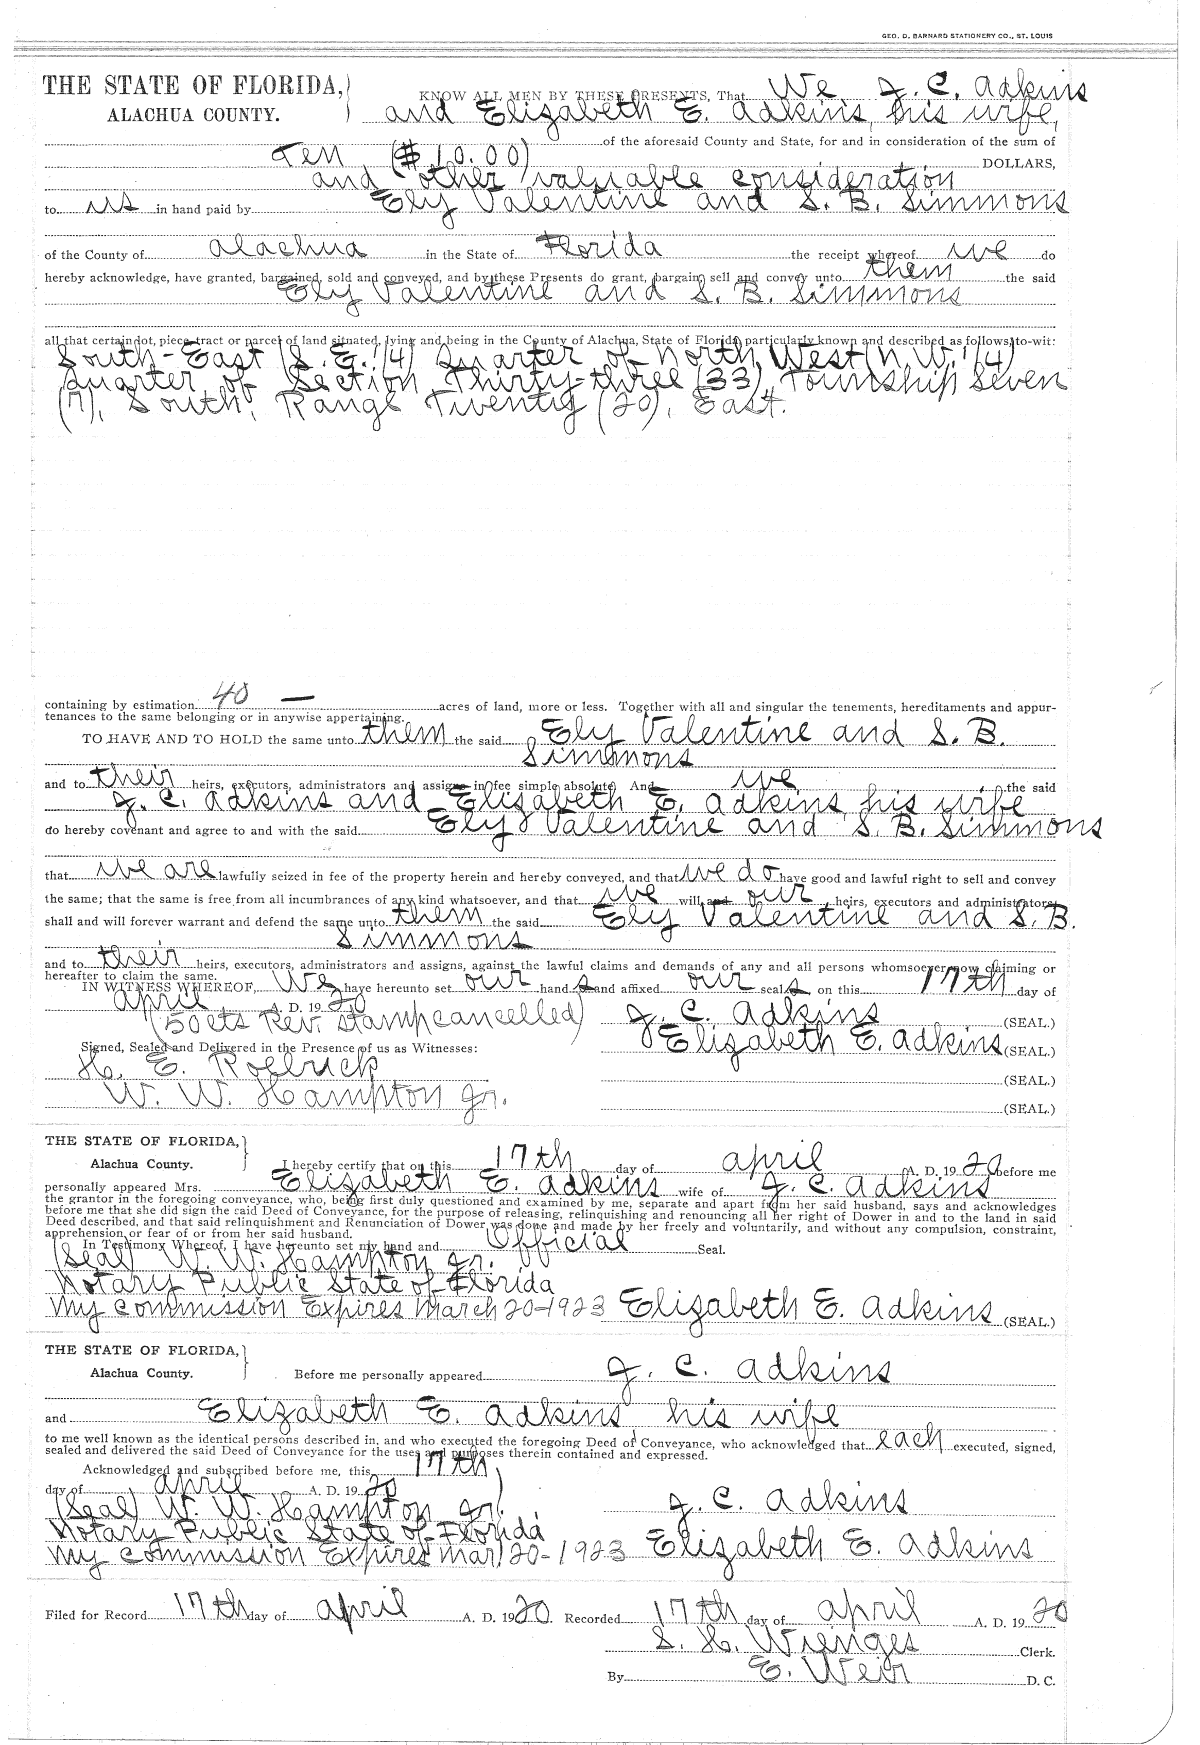 GEO. D. BARNARD STATIONERY CO., ST. LOUIS
THE STATE OF FLORIDA,) KNOW ALL MEN BY THESE PRESENTS, That We J. C. Adkins
ALACHUA COUNTY. ) and Elizabeth E. Adkins, his wife,
of the aforesaid County and State, for and in consideration of the sum of
Ten ($10.00) DOLLARS,
and other valuable consideration
to us in hand paid by Ely Valentine and S. B. Simmons
of the County of Alachua in the State of Florida the receipt whereof we do
hereby acknowledge, have granted, bargained, sold and conveyed, and by these Presents do grant, bargain sell and convey unto them the said
Ely Valentine and S. B. Simmons
all that certain lot, piece, tract or parcel of land situated, lying and being in the County of Alachua, State of Florida, particularly known and described as follows, to-wit:
South-East (S.E. 1/4) Quarter of North West (N.W. 1/4)
Quarter of Section Thirty-three (33), Township Seven
(7), South, Range Twenty (20), East.
containing by estimation 40 — acres of land, more or less. Together with all and singular the tenements, hereditaments and appur-
tenances to the same belonging or in anywise appertaining.
TO HAVE AND TO HOLD the same unto them the said Ely Valentine and S. B.
Simmons
and to their heirs, executors, administrators and assigns in fee simple absolute. And we the said
J. C. Adkins and Elizabeth E. Adkins, his wife
do hereby covenant and agree to and with the said Ely Valentine and S. B. Simmons
that we are lawfully seized in fee of the property herein and hereby conveyed, and that we do have good and lawful right to sell and convey
the same; that the same is free from all incumbrances of any kind whatsoever, and that we will and our heirs, executors and administrators
shall and will forever warrant and defend the same unto them the said Ely Valentine and S. B.
Simmons
and to their heirs, executors, administrators and assigns, against the lawful claims and demands of any and all persons whomsoever now claiming or
hereafter to claim the same.
IN WITNESS WHEREOF, We have hereunto set our hands and affixed our seals on this 17th day of
April A. D. 1920
(50cts Rev. Stamp cancelled) J. C. Adkins (SEAL.)
Elizabeth E. Adkins (SEAL.)
Signed, Sealed and Delivered in the Presence of us as Witnesses:
H. E. (SEAL.)
W. W. Hampton Jr. (SEAL.)
THE STATE OF FLORIDA,)
Alachua County. ) I hereby certify that on this 17th day of April A. D. 1920 before me
personally appeared Mrs. Elizabeth E. Adkins wife of J. C. Adkins
the grantor in the foregoing conveyance, who, being first duly questioned and examined by me, separate and apart from her said husband, says and acknowledges
before me that she did sign the caid Deed of Conveyance, for the purpose of releasing, relinquishing and renouncing all her right of Dower in and to the land in said
Deed described, and that said relinquishment and Renunciation of Dower was done and made by her freely and voluntarily, and without any compulsion, constraint,
apprehension or fear of or from her said husband.
In Testimony Whereof, I have hereunto set my hand and Official Seal.
(Seal) W. W. Hampton Jr.
Notary Public State of Florida
My commission Expires March 20-1923 Elizabeth E. Adkins (SEAL.)
THE STATE OF FLORIDA,)
Alachua County. ) Before me personally appeared J. C. Adkins
and Elizabeth E. Adkins his wife
to me well known as the identical persons described in, and who executed the foregoing Deed of Conveyance, who acknowledged that each executed, signed,
sealed and delivered the said Deed of Conveyance for the uses and purposes therein contained and expressed.
Acknowledged and subscribed before me, this 17th
day of April A. D. 1920
(Seal) W. W. Hampton Jr. J. C. Adkins
Notary Public State of Florida
My commission Expires Mar 20-1923 Elizabeth E. Adkins
Filed for Record 17th day of April A. D. 1920 Recorded 17th day of April A. D. 1920
S. H. Wienges Clerk.
By E. Weir D. C.